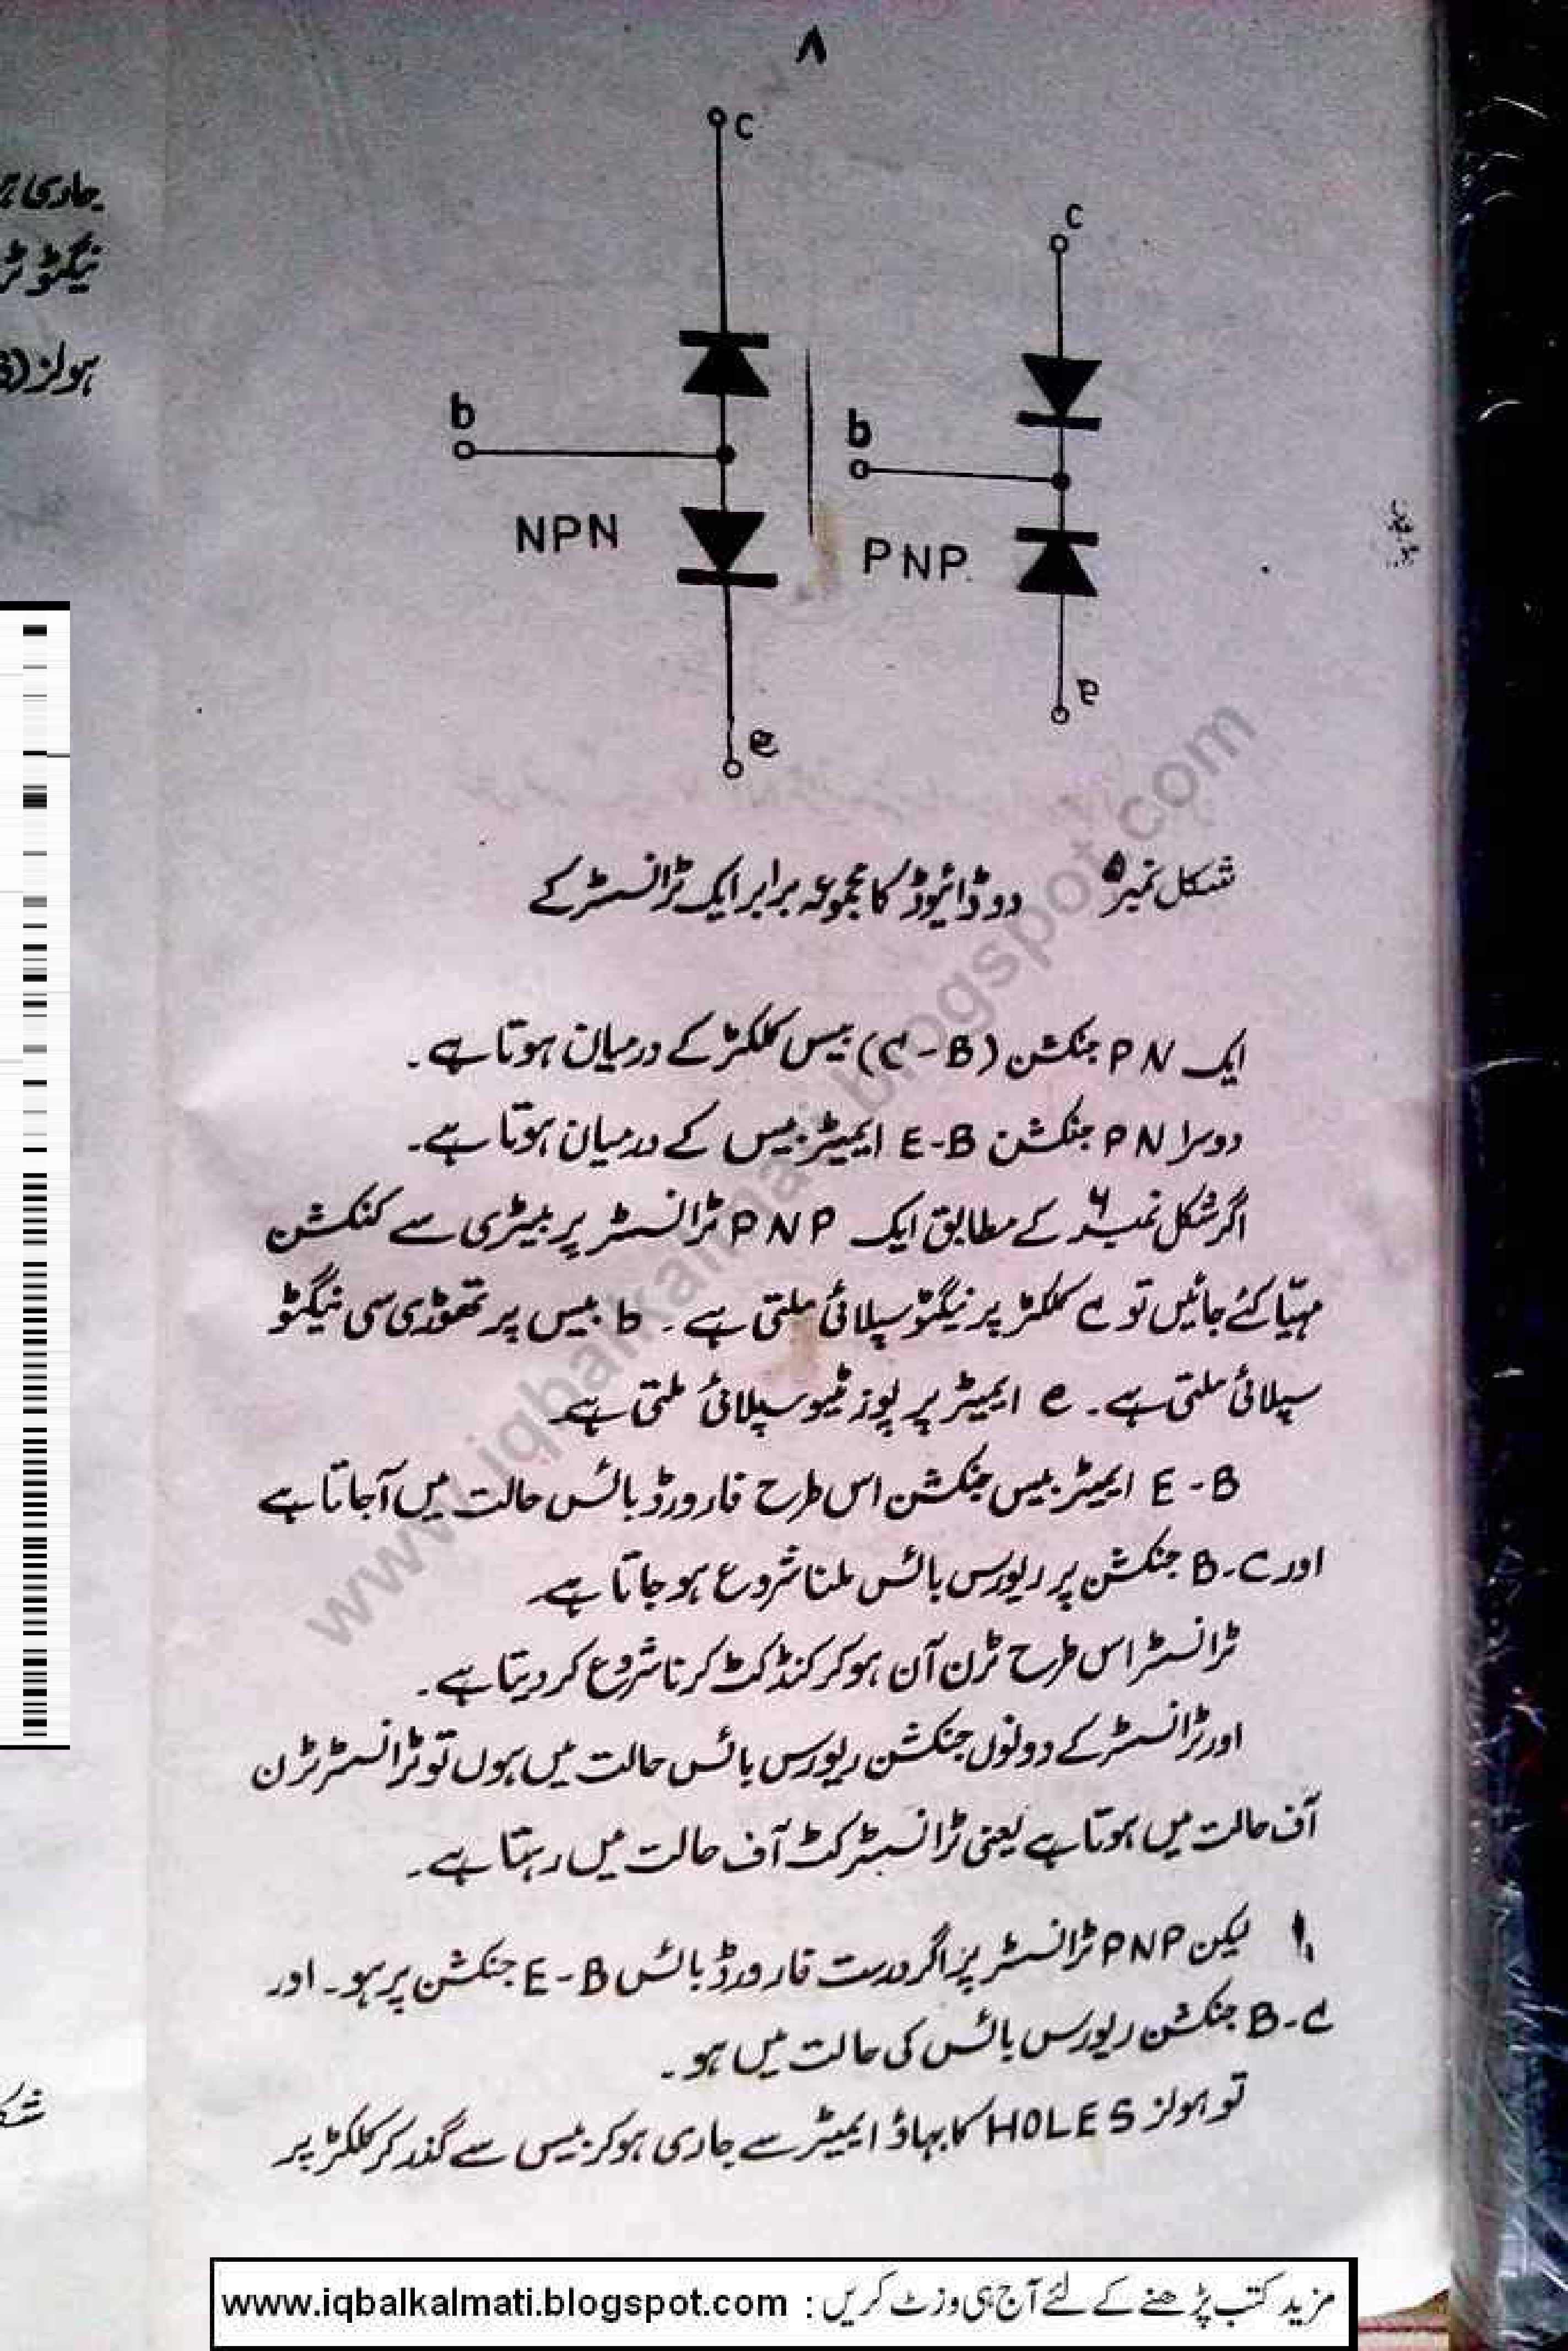 ۸
c
c
b
b
NPN
PNP
e
e
شکل نمبر ۵ دو ڈائیوڈ کا مجموعہ برابر ایک ٹرانسسٹر کے
ایک PN جنکشن (C-B) بیس کلکٹر کے درمیان ہوتا ہے۔
دوسرا PN جنکشن E-B ایمیٹر بیس کے درمیان ہوتا ہے۔
اگر شکل نمبر ۶ کے مطابق ایک PNP ٹرانسسٹر پر بیٹری سے کنکشن
مہیّا کئے جائیں تو c کلکٹر پر نیگٹو سپلائی ملتی ہے۔ b بیس پر تھوڑی سی نیگٹو
سپلائی ملتی ہے۔ e ایمیٹر پر پوزیٹیو سپلائی ملتی ہے۔
E-B ایمیٹر بیس جنکشن اس طرح فارورڈ بائس حالت میں آجاتا ہے
اور B-C جنکشن پر ریورس بائس ملنا شروع ہو جاتا ہے۔
ٹرانسسٹر اس طرح ٹرن آن ہو کر کنڈکٹ کرنا شروع کر دیتا ہے۔
اور ٹرانسسٹر کے دونوں جنکشن ریورس بائس حالت میں ہوں تو ٹرانسسٹر ٹرن
آف حالت میں ہوتا ہے یعنی ٹرانسسٹر کٹ آف حالت میں رہتا ہے۔
لیکن PNP ٹرانسسٹر پر اگر درست فارورڈ بائس E-B جنکشن پر ہو۔ اور
B-C جنکشن ریورس بائس کی حالت میں ہو۔
تو ہولز HOLES کا بہاؤ ایمیٹر سے جاری ہو کر بیس سے گذر کر کلکٹر پر
جاری
نیگٹو
ہولز
www.iqbalkalmati.blogspot.com
مزید کتب پڑھنے کے لئے آج ہی وزٹ کریں : www.iqbalkalmati.blogspot.com